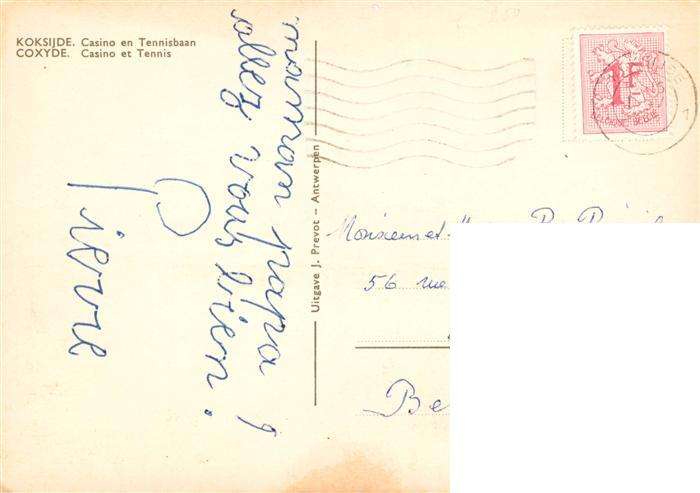 KOKSIJDE. Casino en Tennisbaan
COXYDE. Casino et Tennis
maman papa !
allez vous bien.
Pierre
Uitgave J. Prevot – Antwerpen
1F
BELGIQUE-BELGIE
Monsieur et
56 rue
Be